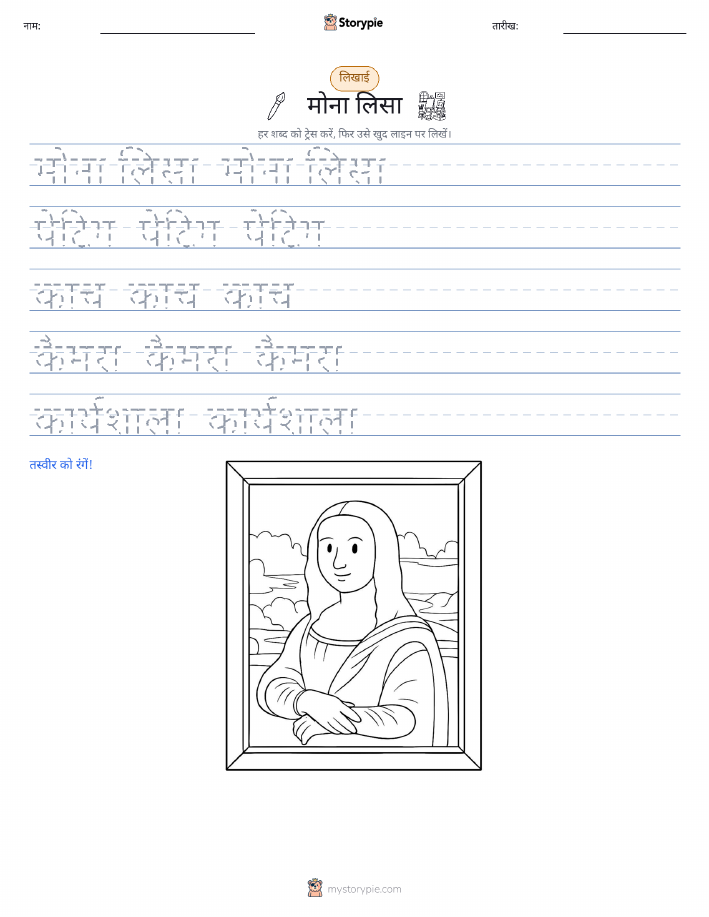 नाम:
Storypie
तारीख:
लिखाई
मोना लिसा
हर शब्द को ट्रेस करें, फिर उसे खुद लाइन पर लिखें।
मोना लिसा मोना लिसा
पेंटिंग पेंटिंग पेंटिंग
काच काच काच
कैमरा कैमरा कैमरा
कार्यशाला कार्यशाला
तस्वीर को रंगें!
mystorypie.com